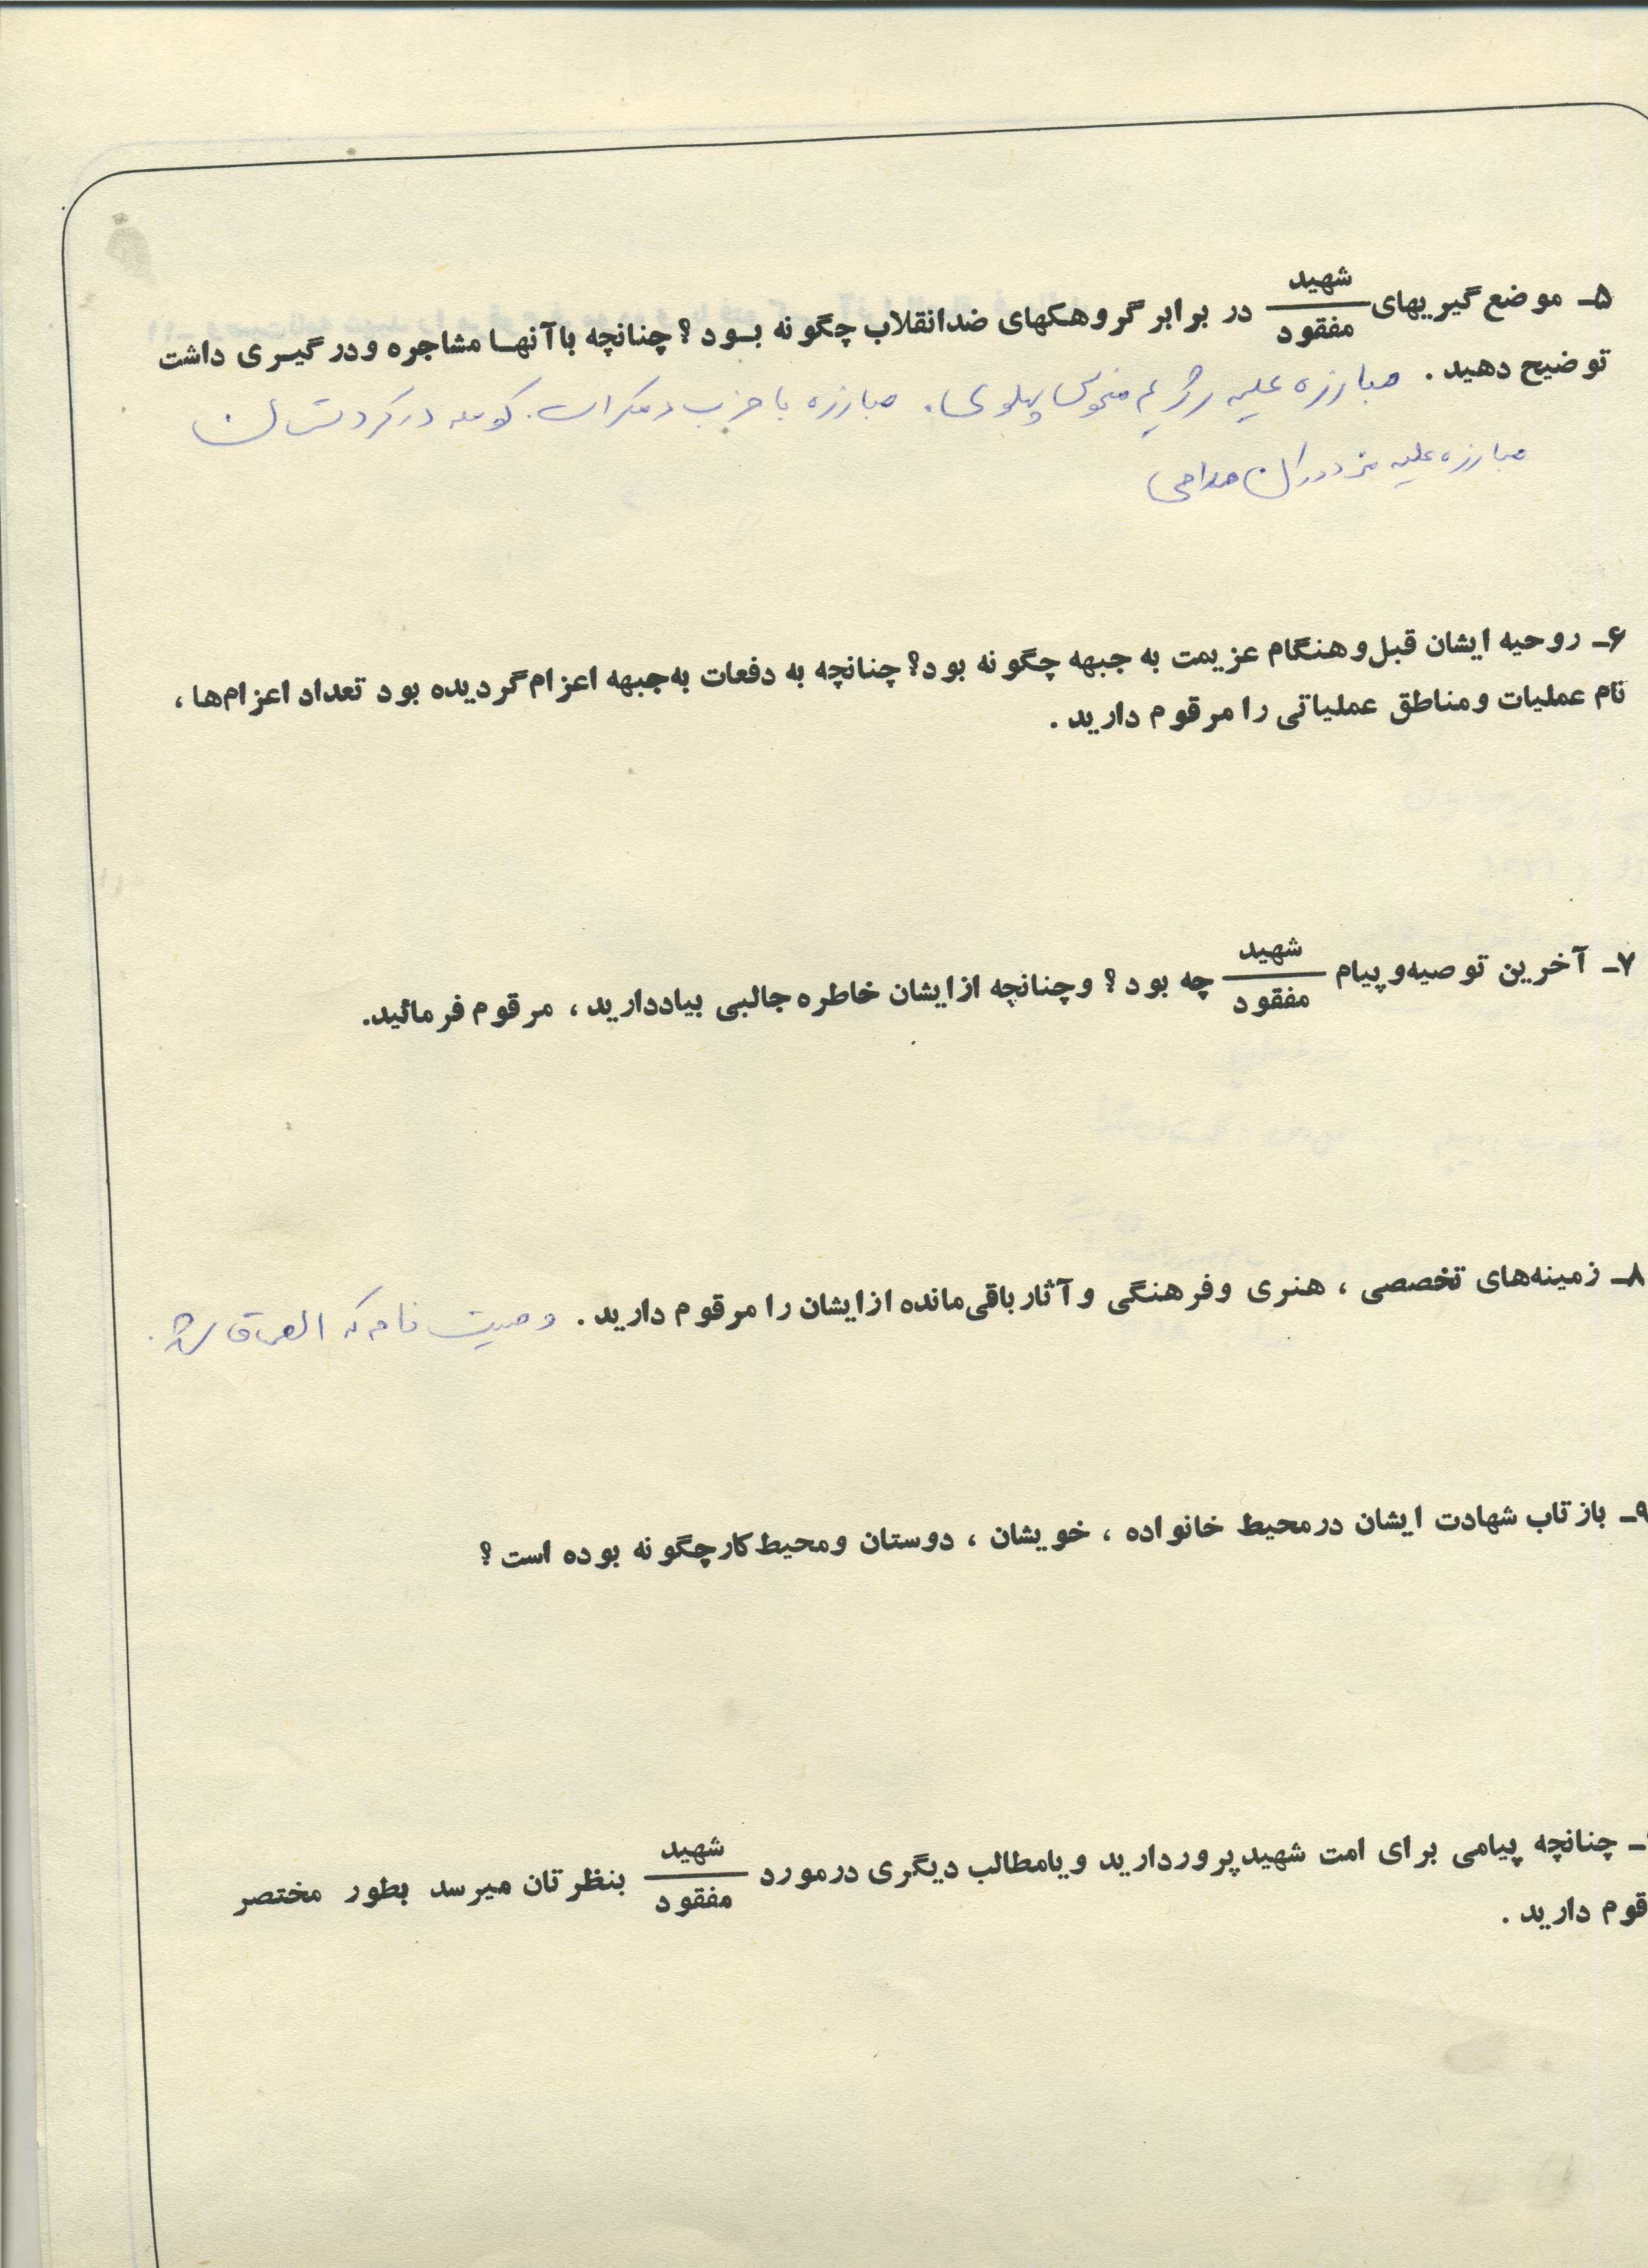 ۵ـ موضع‌گیریهای شهید/مفقود در برابر گروهکهای ضدانقلاب چگونه بـود؟ چنانچه باآنهـا مشاجره ودرگیـری داشت
توضیح دهید. مبارزه علیه رژیم منحوس پهلوی. مبارزه با حزب دمکرات. کومله در کردستان
مبارزه علیه مزدوران
۶ـ روحیه ایشان قبل‌وهنگام عزیمت به جبهه چگونه بود؟ چنانچه به دفعات به‌جبهه اعزام‌گردیده بود تعداد اعزام‌ها،
نام عملیات ومناطق عملیاتی را مرقوم دارید.
۷ـ آخرین توصیه‌وپیام شهید/مفقود چه بود؟ وچنانچه ازایشان خاطره جالبی بیاددارید، مرقوم فرمائید.
۸ـ زمینه‌های تخصصی، هنری وفرهنگی وآثارباقی‌مانده ازایشان را مرقوم دارید. وصیت نامه که
۹ـ بازتاب شهادت ایشان درمحیط خانواده، خویشان، دوستان ومحیط‌کارچگونه بوده است؟
ـ چنانچه پیامی برای امت شهیدپروردارید ویامطالب دیگری درمورد شهید/مفقود بنظرتان میرسد بطور مختصر
قوم دارید.